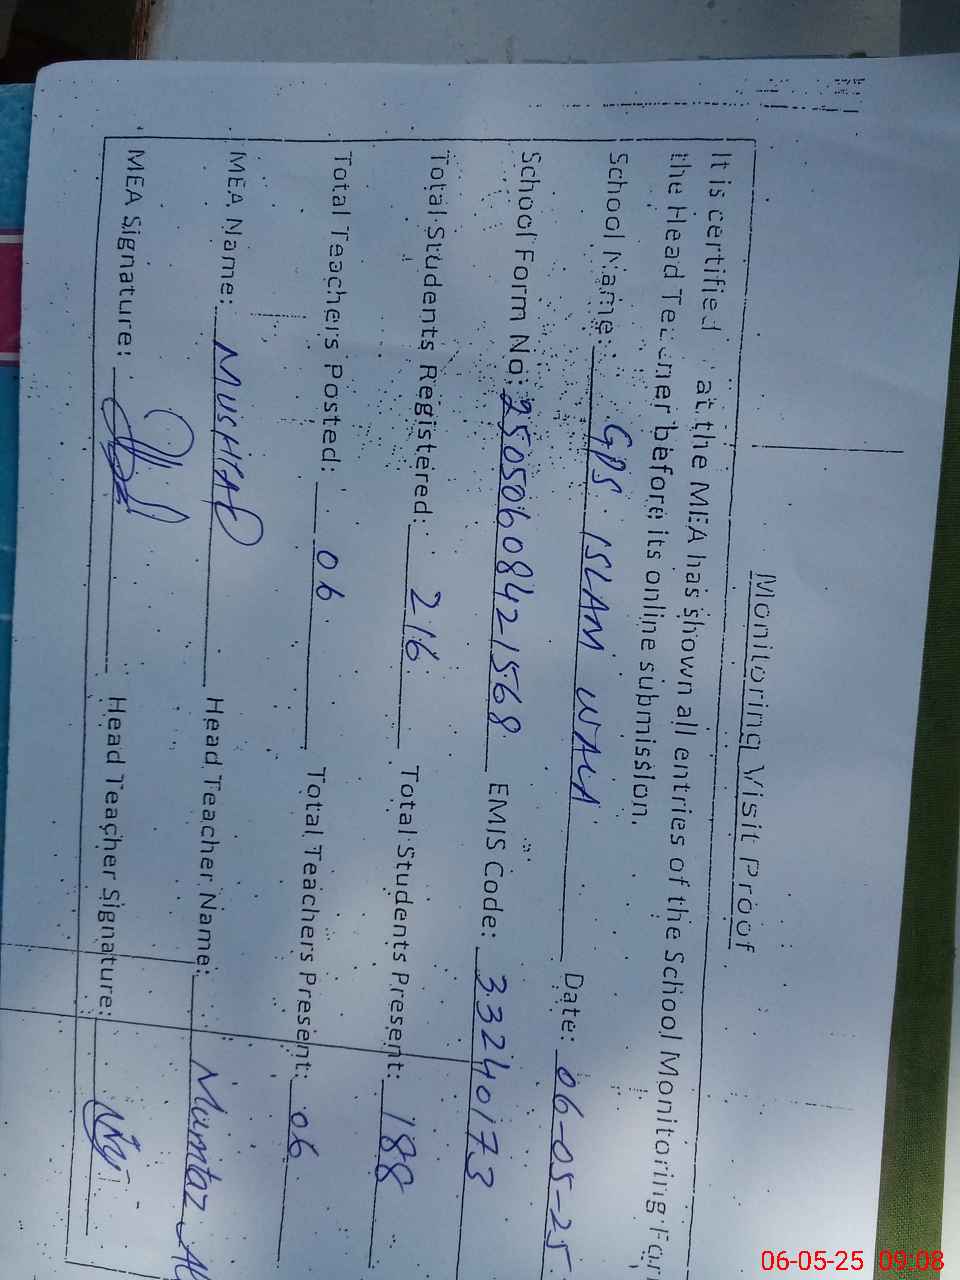 Monitoring Visit Proof
It is certified at the MEA has shown all entries of the School Monitoring
the Head Teacher before its online submission.
School Name: GPS ISLAM WALA Date: 06-05-25
School Form No: 25050608421568 EMIS Code: 33240173
Total Students Registered: 216 Total Students Present: 188
Total Teachers Posted: 06 Total Teachers Present: 06
MEA Name: MUSHTAQ Head Teacher Name: Mumtaz
MEA Signature: Head Teacher Signature:
06-05-25 09:08